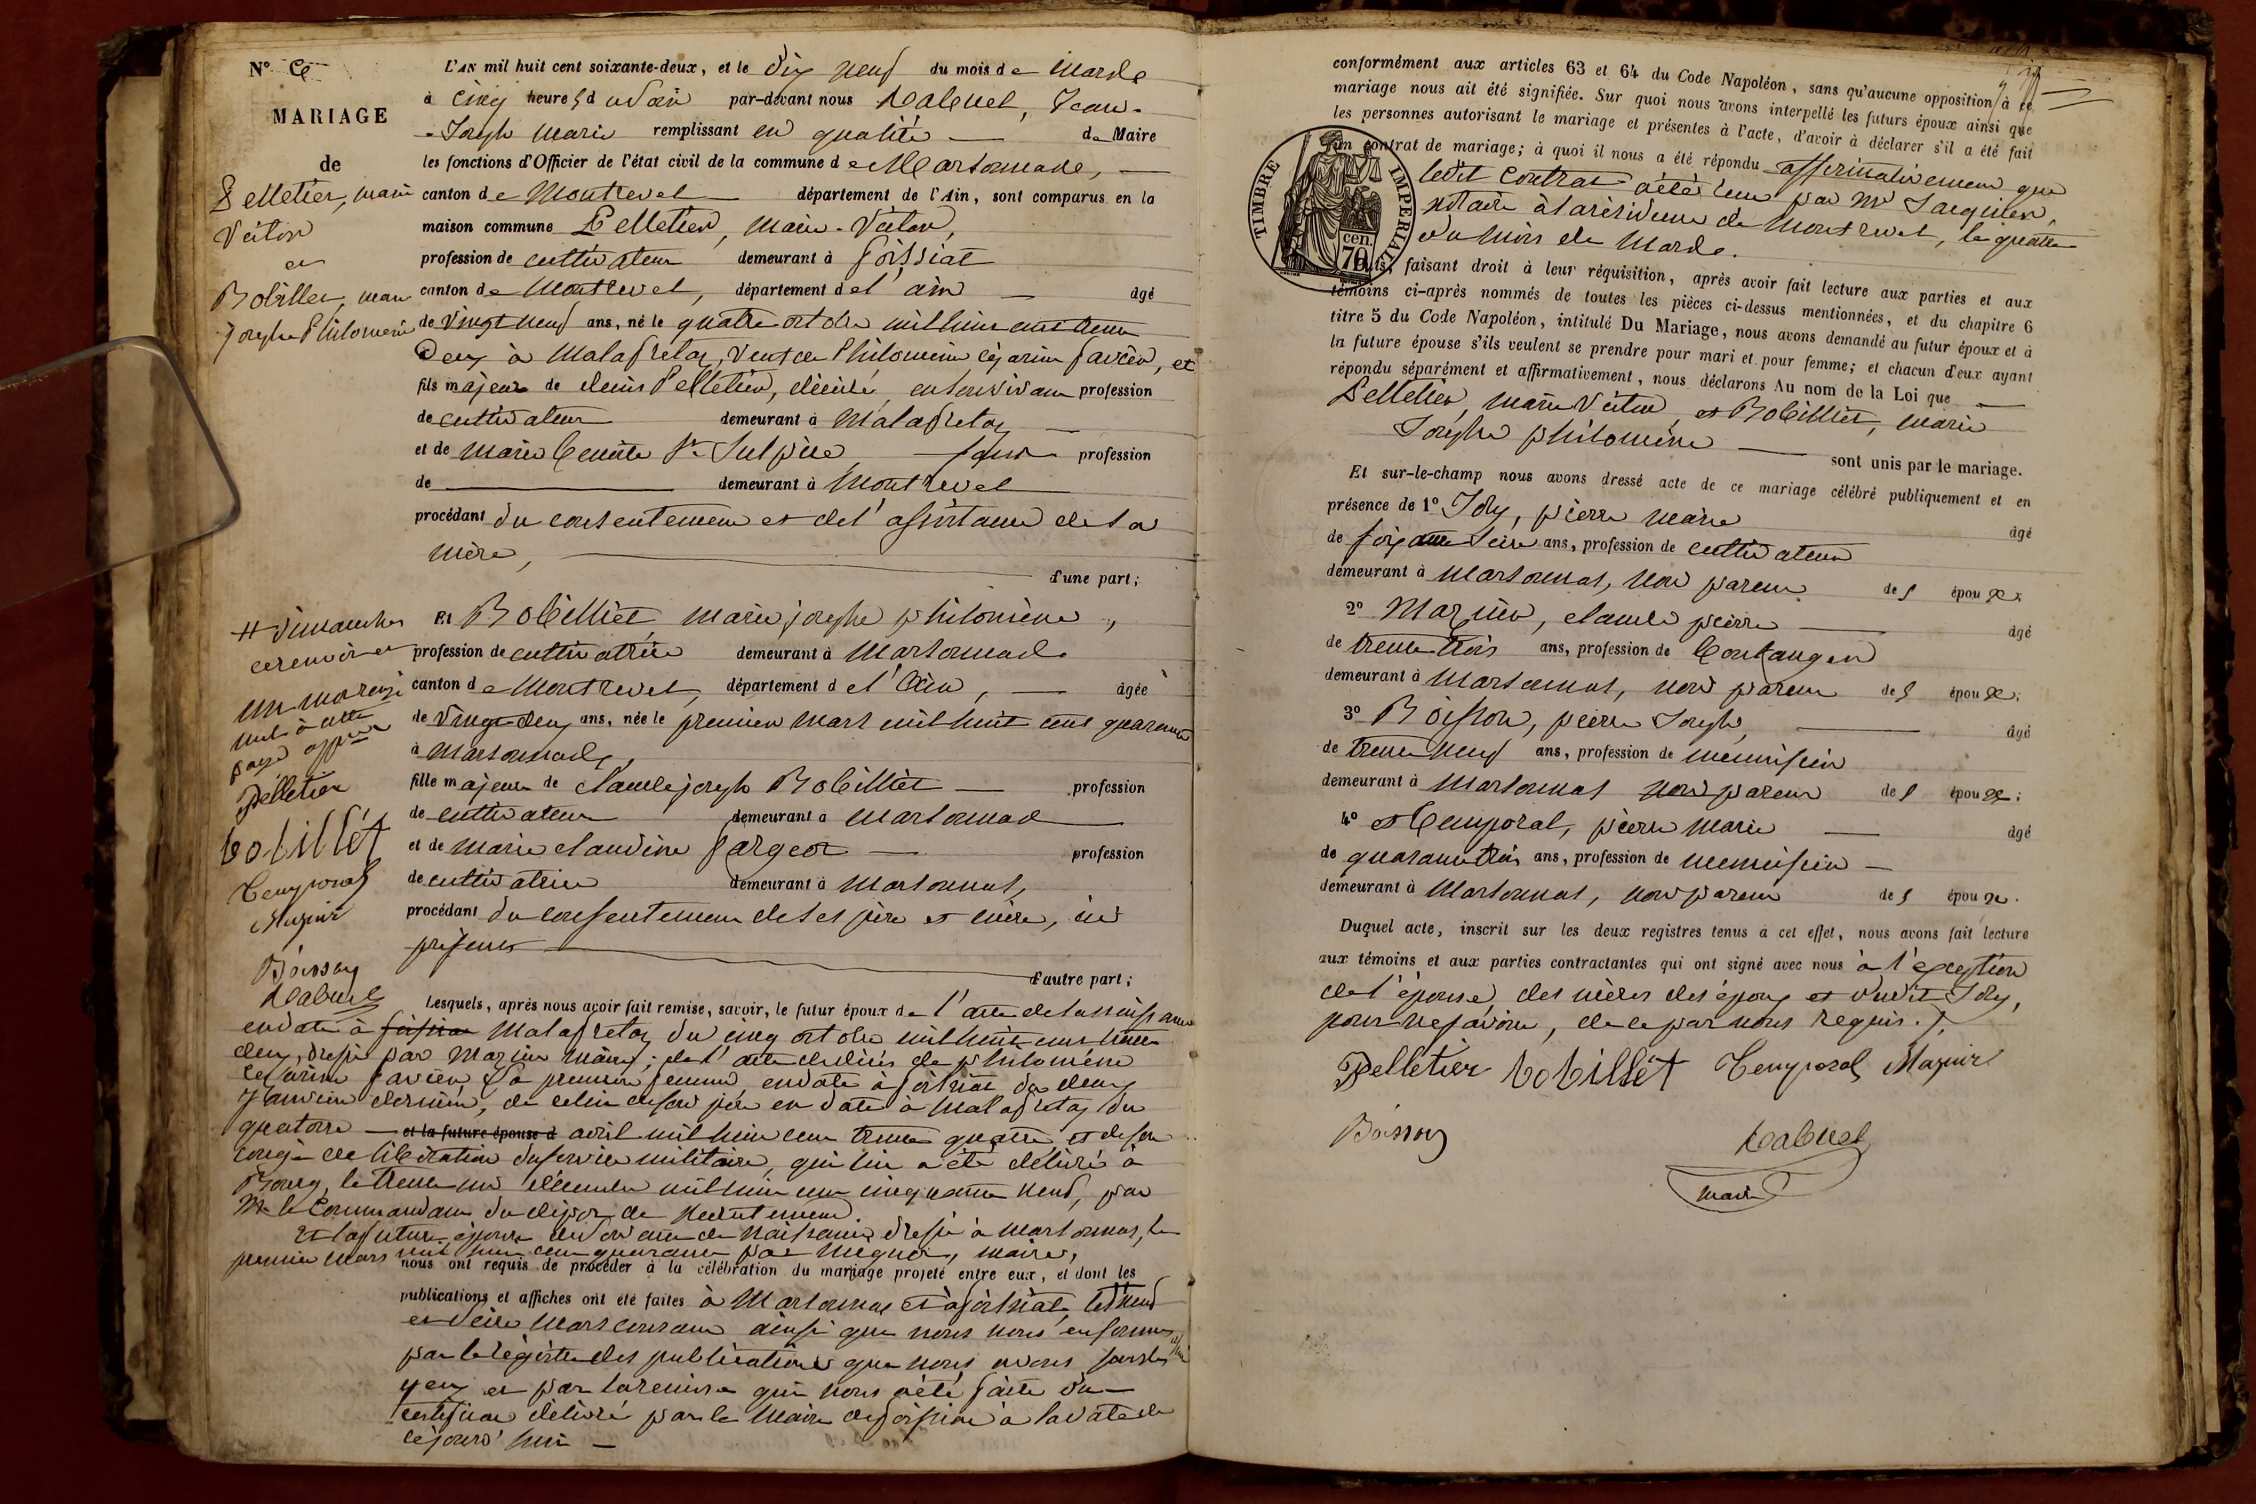 N°
MARIAGE
de
Pelletier, marie
Victor
et
Bobillier, marie
Joseph Philomène
L'AN mil huit cent soixante-deux, et le dix neuf du mois de Mars
à cinq heures du soir par-devant nous Jean-
Joseph Marie remplissant en qualité de Maire
les fonctions d'Officier de l'état civil de la commune de Marsonnas,
canton de Montrevel département de l'Ain, sont comparus en la
maison commune Pelletier, Marie-Victor,
profession de cultivateur demeurant à foissiat
canton de Montrevel, département de l'ain âgé
de vingt neuf ans, né le quatre octobre mil huit cent trente
deux à Malafretaz, veuf de Philomène favier, et
fils majeur de denis Pelletier, décédé, en son vivant profession
de cultivateur demeurant à Malafretaz
et de marie St Sulpice profession
de demeurant à Montrevel
procédant du consentement et de l'assistance de sa
mère,
d'une part;
Et Bobilliet, marie joseph philomène,
profession de cultivatrice demeurant à Marsonnas
canton de Montrevel, département de l'Ain, âgée
de vingt deux ans, née le premier mars mil huit cent quarante
à marsonnas,
fille majeure de claude joseph Bobilliet profession
de cultivateur demeurant à marsonnas
et de marie claudine fargeot profession
de cultivatrice demeurant à marsonnas,
procédant du consentement de ses père et mère, ici
présents
d'autre part;
# dimanches
ce renvoi et
un mot rayé
nuls à cette
page
Pelletier
bobillét
Temporal
Mazuir
Boisson
Lesquels, après nous avoir fait remise, savoir, le futur époux de l'acte de sa naissance
en date à Malafretaz du cinq octobre mil huit cent trente
deux, dressé par Mazuir maire; de l'acte de décès de philomène
favier, sa première femme, en date à foissiat du deux
janvier dernier, de celui de son père en date à Malafretaz du
quatorze et la future épouse d avril mil huit cent trente quatre et de son
congé de libération du service militaire, qui lui a été délivré à
Bourg, le trente un décembre mil huit cent cinquante neuf, par
Mr le Commandant du dépôt de recrutement.
Et la future épouse de son acte de naissance dressé à marsonnas, le
premier mars mil huit cent quarante par maire,
nous ont requis de procéder à la célébration du mariage projeté entre eux, et dont les
publications et affiches ont été faites à Marsonnas et à foissiat, les neuf
et seize Mars courant ainsi que nous nous en sommes
par le régistre des publications que nous avons sous les
yeux et par la remise qui nous a été faite du
certificat délivré par le Maire de foissiat à la date de
cejourd'hui
conformément aux articles 63 et 64 du Code Napoléon, sans qu'aucune opposition à ce
mariage nous ait été signifiée. Sur quoi nous avons interpellé les futurs époux ainsi que
les personnes autorisant le mariage et présentes à l'acte, d'avoir à déclarer s'il a été fait
un contrat de mariage; à quoi il nous a été répondu affirmativement que
ledit contrat a été reçu par Me
notaire à la résidence de Montrevel, le quatre
du mois de Mars.
TIMBRE IMPERIAL
70 cen.
Puis, faisant droit à leur réquisition, après avoir fait lecture aux parties et aux
témoins ci-après nommés de toutes les pièces ci-dessus mentionnées, et du chapitre 6
titre 5 du Code Napoléon, intitulé Du Mariage, nous avons demandé au futur époux et à
la future épouse s'ils veulent se prendre pour mari et pour femme; et chacun d'eux ayant
répondu séparément et affirmativement, nous déclarons Au nom de la Loi que
Pelletier, marie Victor et Bobilliet, marie
Joseph philomène
sont unis par le mariage.
Et sur-le-champ nous avons dressé acte de ce mariage célébré publiquement et en
présence de 1° Joly, pierre marie âgé
de soixante seize ans, profession de cultivateur
demeurant à marsonnas, non parent des époux;
2° Mazuir, claude pierre âgé
de trente trois ans, profession de Boulanger
demeurant à marsonnas, non parent des époux;
3° Boisson, pierre Joseph, âgé
de trente neuf ans, profession de menuisier
demeurant à Marsonnas non parent des époux;
4° et Temporal, pierre marie âgé
de quarante trois ans, profession de menuisier
demeurant à Marsonnas, non parent des époux.
Duquel acte, inscrit sur les deux registres tenus à cet effet, nous avons fait lecture
aux témoins et aux parties contractantes qui ont signé avec nous à l'exception
de l'épouse, des mères des époux et dudit Joly,
pour ne savoir, de ce par nous requis.
Pelletier bobillét Temporal Mazuir
Boisson
maire